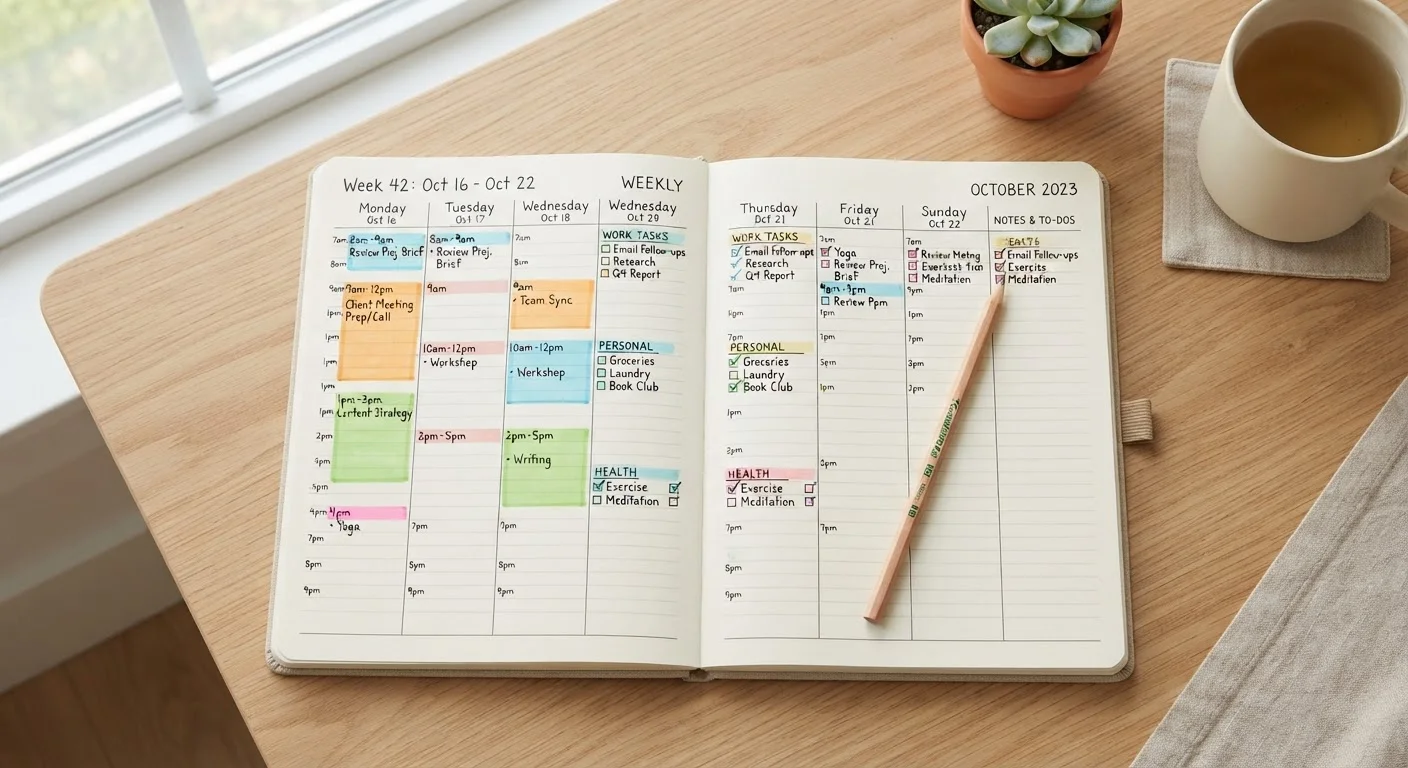 Week 42: Oct 16 - Oct 22
WEEKLY
Monday
Tuesday
Oct 17
Wednesday
Oct 18
Wednesday
Oct 29
7am
8am
Review Prej. Brief
9am-12pm
Client Meeting
Prep/Call
1pm
1pm
1pm
1pm-3pm
1pm
Strategy
2pm
4pm
5pm
4pm
4pm
• Yoga
7pm
5pm
9pm
• Roview Prej.
Brief
9am
10am-12pm
• Workshep
2pm-5pm
7pm
5ym
9pm
7am
8am
• Team Sync
10am-12pm
• Werkshep
2pm-5pm
• Writing
7pm
5pm
8pm
WORK TASKS
Email Follow-ups
Research
Q4 Report
PERSONAL
Groceries
Laundry
Book Club
HEALTH
Exercise
Meditation
OCTOBER 2023
Thursday
Oct 21
Friday
Oct 21
Sunday
Oct 22
NOTES & TO-DOS
WORK TASKS
Email
Research
Q4 Report
7am
7pm
PERSONAL
Grecsries
Laundry
Book Club
1pm
2pm
HEALTH
Exercise
Meditation
7pm
5pm
9pm
Yoga
Review Prej.
Brief
Review Ppm
1pm
1pm
5pm
1pm
8pm
7pm
7am
Meditation
9pm
1pm
3pm
Email Fellew-ups
Exercits
Meditation